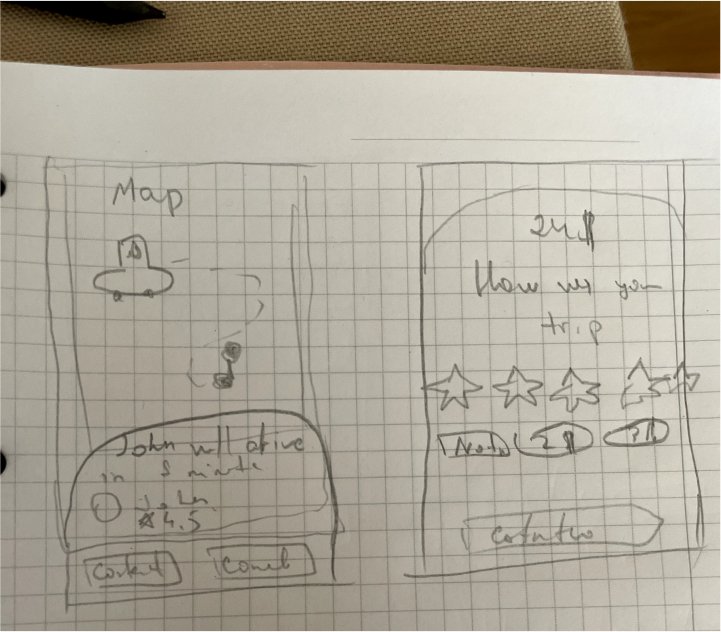 Map
John will arive
in 8 minute
John
4.5
Contact Cancel
24$
How was your
trip
2$ 3$